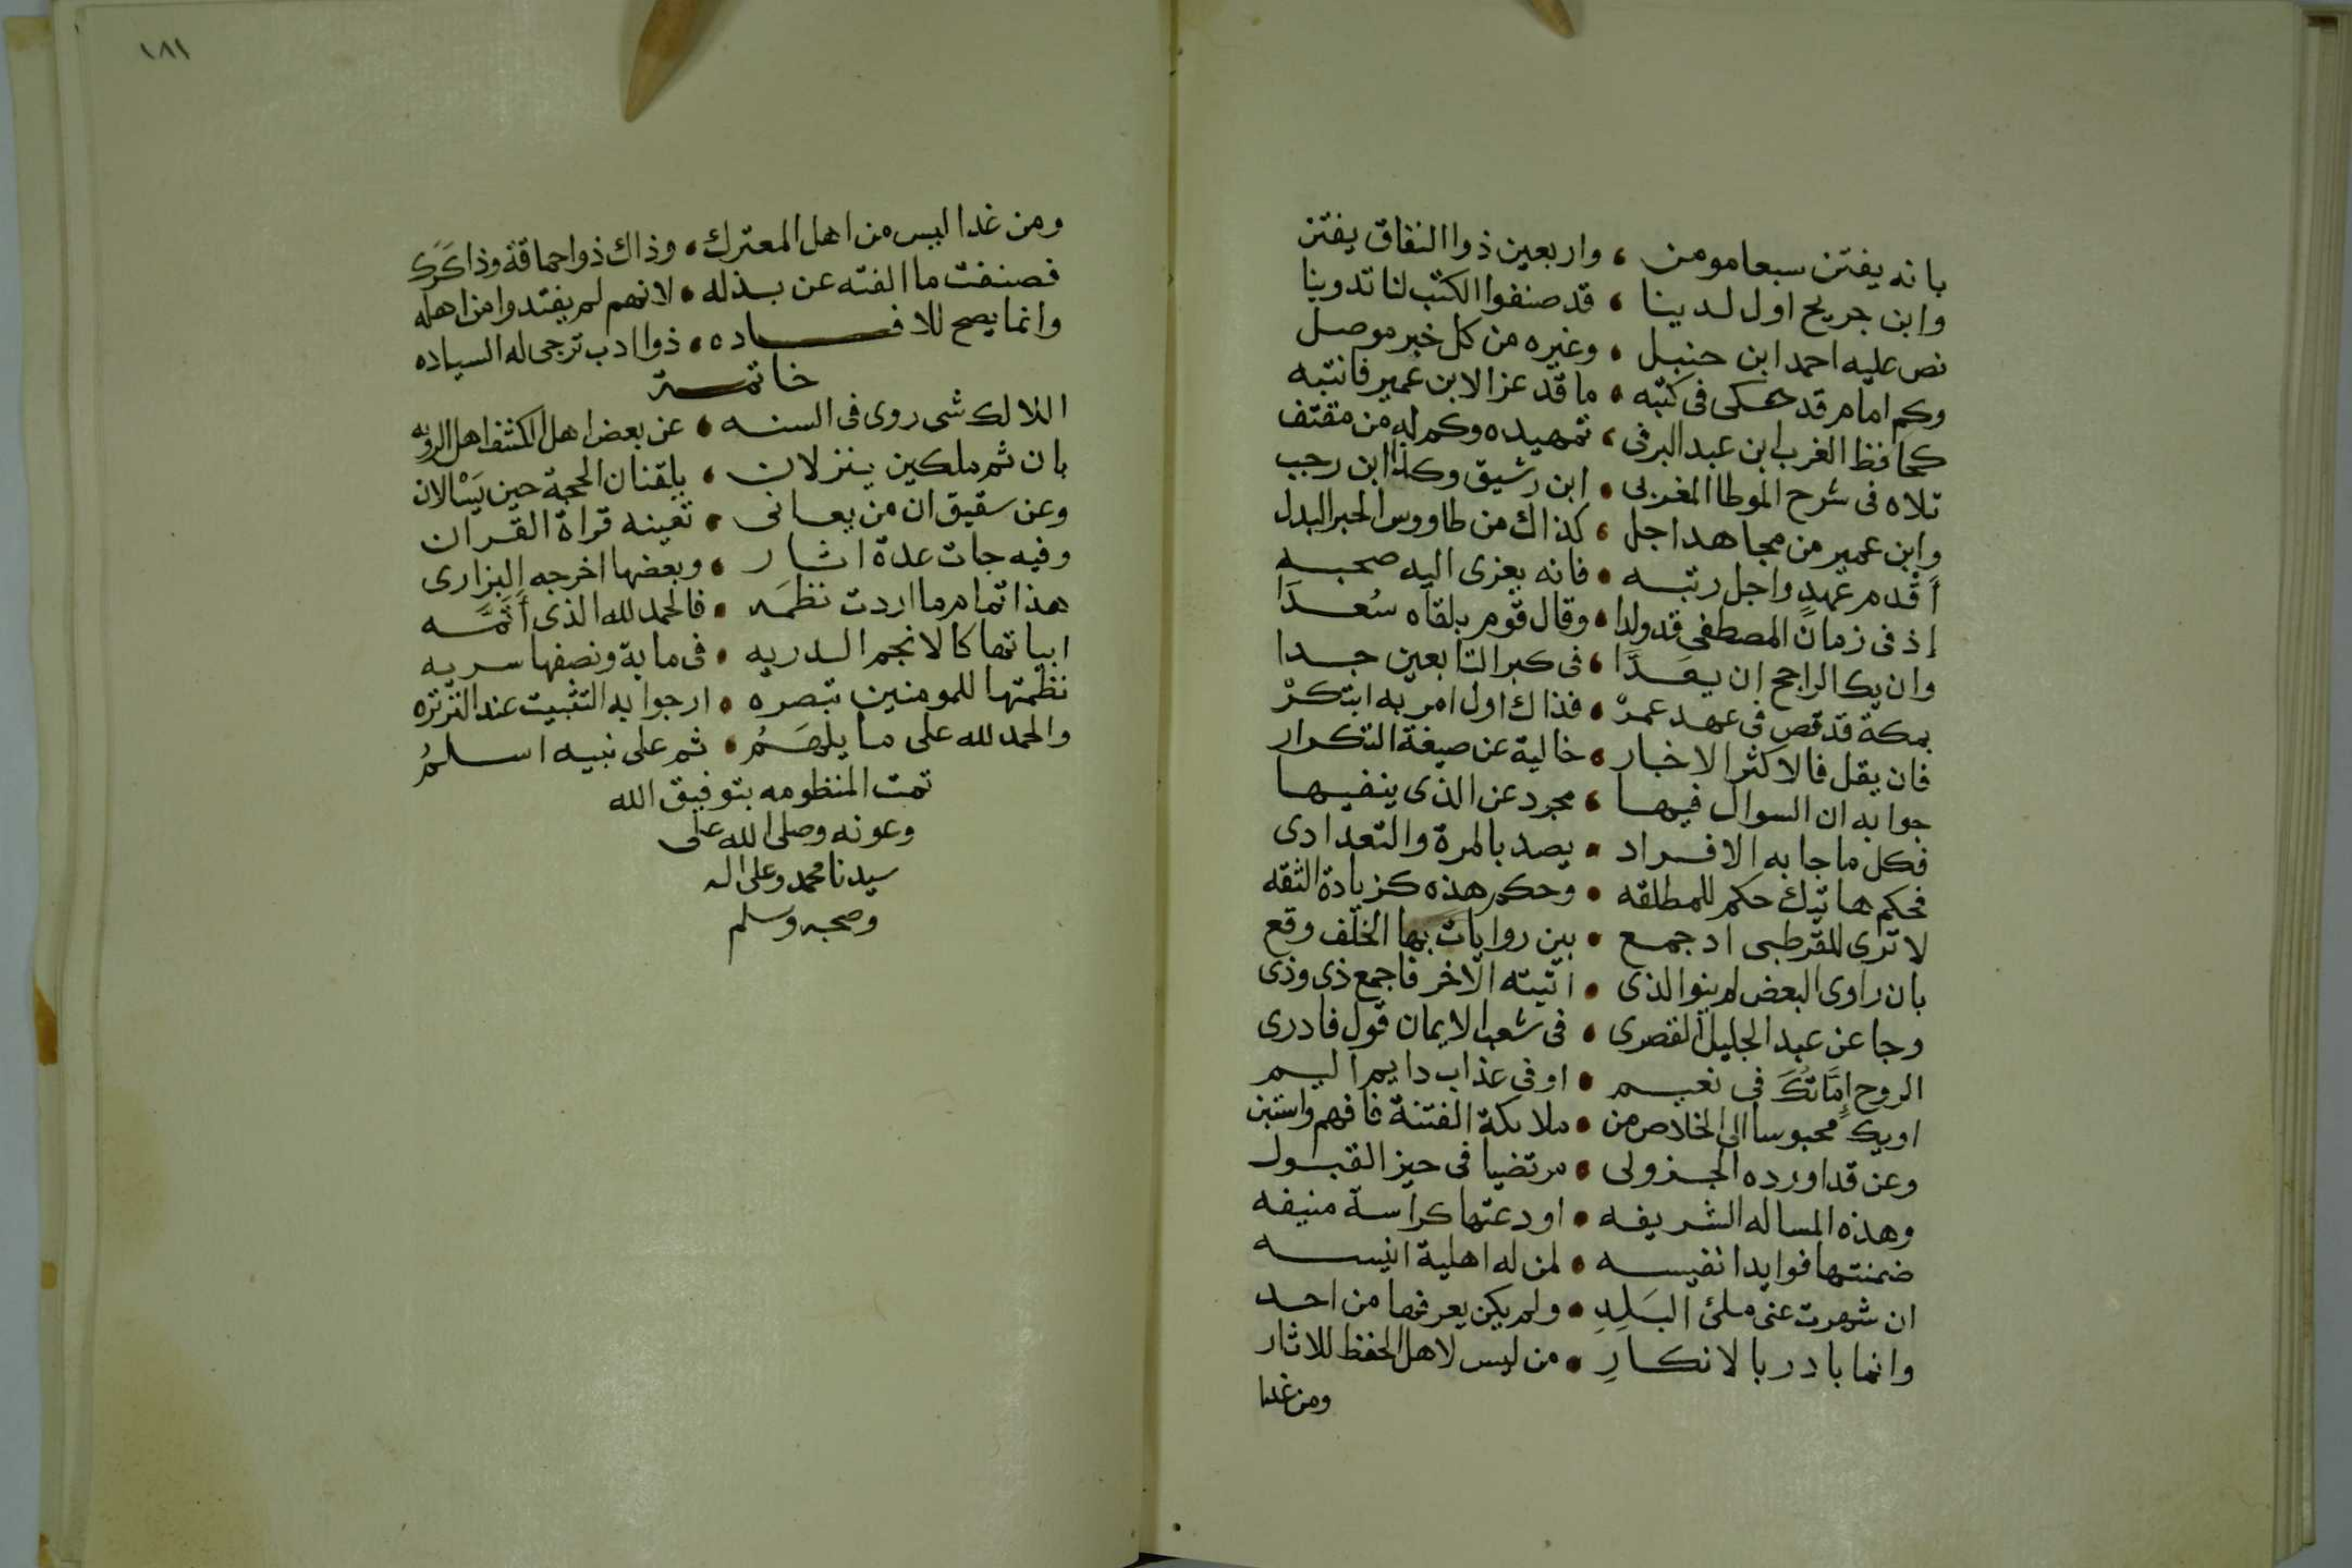 بانه يفتن سبعا مومن ، واربعين ذوا النفاق يفتن
وابن جريج اول لدينا ، قد صنفوا الكتب لنا تدوينا
نص عليه احمد ابن حنبل ، وغيره من كل خبر موصل
وكم امام قد حكى فى كتبه ، ما قد عزا لابن عمير فانتبه
كحافظ الغرب ابن عبد البر فى ، تمهيده وكم له من مقتف
تلاه فى شرح الموطا المغربى ، ابن رشيق وكذا ابن رجب
وابن عمير من مجاهد اجل ، كذاك من طاووس الحبر البدل
أقدم عهدٍ واجل رتبه ، فانه يعزى اليه صحبه
إذ فى زمان المصطفى قد ولدا ، وقال قوم بلقاه سُعدَا
وان يك الراجح ان يعَدَّا ، فى كبر التابعين جدا
بمكة قد قص فى عهد عمرْ ، فذاك اول امر به ابتكرْ
فان يقل فالاكثر الاخبار ، خالية عن صيغة التكرار
جوابه ان السوال فيها ، مجرد عن الذى ينفيها
فكل ما جا به الافراد ، يصد بالمرة والتعدادى
فحكم هاتيك حكم للمطلقه ، وحكم هذه كزيادة الثقه
لا ترى للقرطبى اد جمع ، بين روايات بها الخلف وقع
بان راوى البعض لم ينو الذى ، اتيته الاخر فاجمع ذى وذى
وجا عن عبد الجليل القصرى ، فى شعب الايمان قول فادرى
الروح إمَّا تكُ فى نعيم ، او فى عذاب دايم اليم
او يك محبوسا الى الخلاص من ، ملايكة الفتنة فافهم واستبن
وعن قد اورده الجزولى ، مرتضيا فى حيز القبول
وهذه المساله الشريفه ، اودعتها كراسة منيفه
ضمنتها فوايدا نفيسه ، لمن له اهلية انيسه
ان شهرت عنى ملئ البَلِدِ ، ولم يكن يعرفها من احد
وانما بادر بالانكارِ ، من ليس لاهل الحفظ للاثار
ومن غدا
١٨١
ومن غدا ليس من اهل المعترك ، وذاك ذوا حماقة وذا كَرَك
فصنفت ما الفته عن بذله ، لانهم لم يفتدوا من اهله
وانما يصح للافاده ، ذوا ادب ترجى له السياده
خاتمة
اللالك شى روى فى السنه ، عن بعض اهل الكشف اهل الرويه
بان ثم ملكين ينزلان ، يلقنان الحجة حين يَسْالان
وعن سقيق ان من يعانى ، تعينه قراة القران
وفيه جات عدة اثار ، وبعضها اخرجه البزارى
هذا تمام ما اردت نظمَه ، فالحمد لله الذى أتَمَّه
ابياتها كالانجم الدريه ، فى ماية ونصفها سريه
نظمتها للمومنين تبصره ، ارجوا به التثبيت عند الترتره
والحمد لله على ما يلهَمُ ، ثم على نبيه اسلمُ
تمت المنظومه بتوفيق الله
وعونه وصلى الله على
سيدنا محمد وعلى اله
وصحبه وسلم